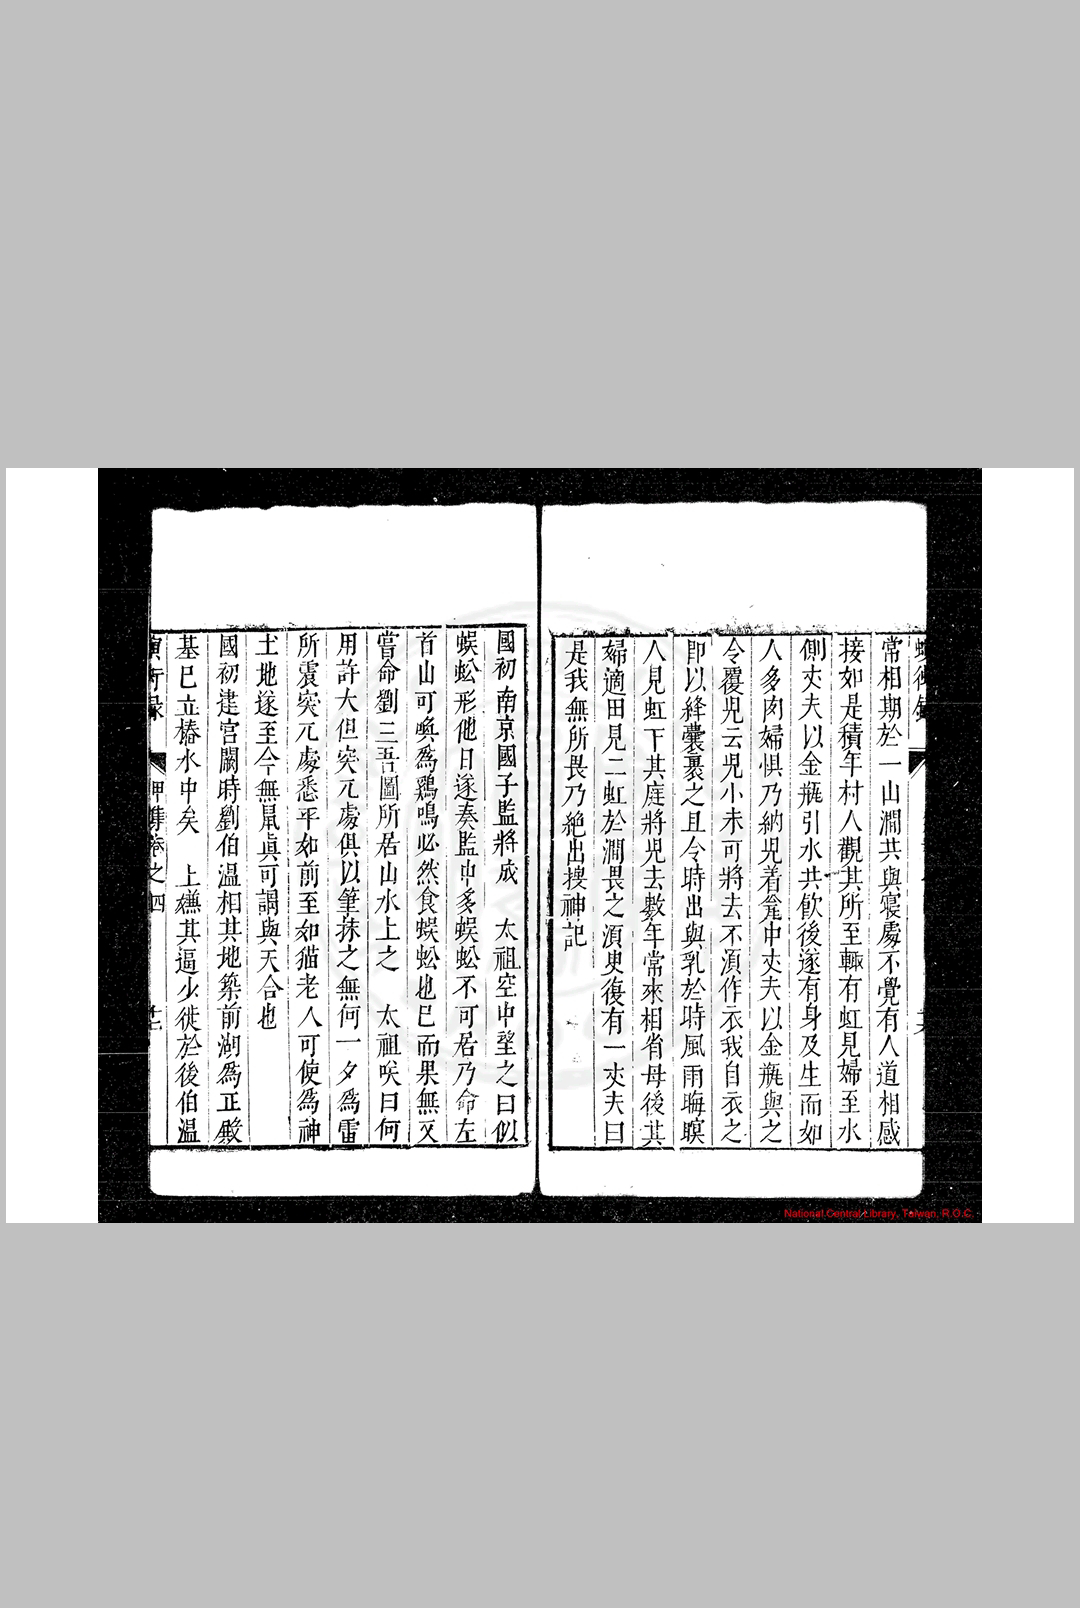 常相期於一山澗共與寢處不覺有人道相感
接如是積年村人觀其所至輒有虹見婦至水
側丈夫以金瓶引水共飲後遂有身及生而如
人多肉婦惧乃納兒着瓮中丈夫以金瓶與之
令覆兒云兒小未可將去不湏作衣我自衣之
即以絳囊裹之且令時出與乳於時風雨晦暝
人見虹下其庭將兒去數年常來相省母後其
婦適田見二虹於澗畏之湏臾復有一丈夫曰
是我無所畏乃絕出搜神記
國初南京國子監將成　太祖空中望之曰似
蜈蚣形他日遂奏監中多蜈蚣不可居乃命左
首山可喚為鷄鳴必然食蜈蚣也已而果無又
嘗命劉三吾圖所居山水上之　太祖咲曰何
用許大但突兀處俱以筆抹之無何一夕為雷
所震突兀處悉平如前至如猫老人可使為神
土地遂至今無鼠真可謂與天合也
國初建宮闕時劉伯溫相其地築前湖為正殿
基已立樁水中矣　上嫌其逼少徙於後伯溫
甲集卷之四
National Central Library, Taiwan, R.O.C.